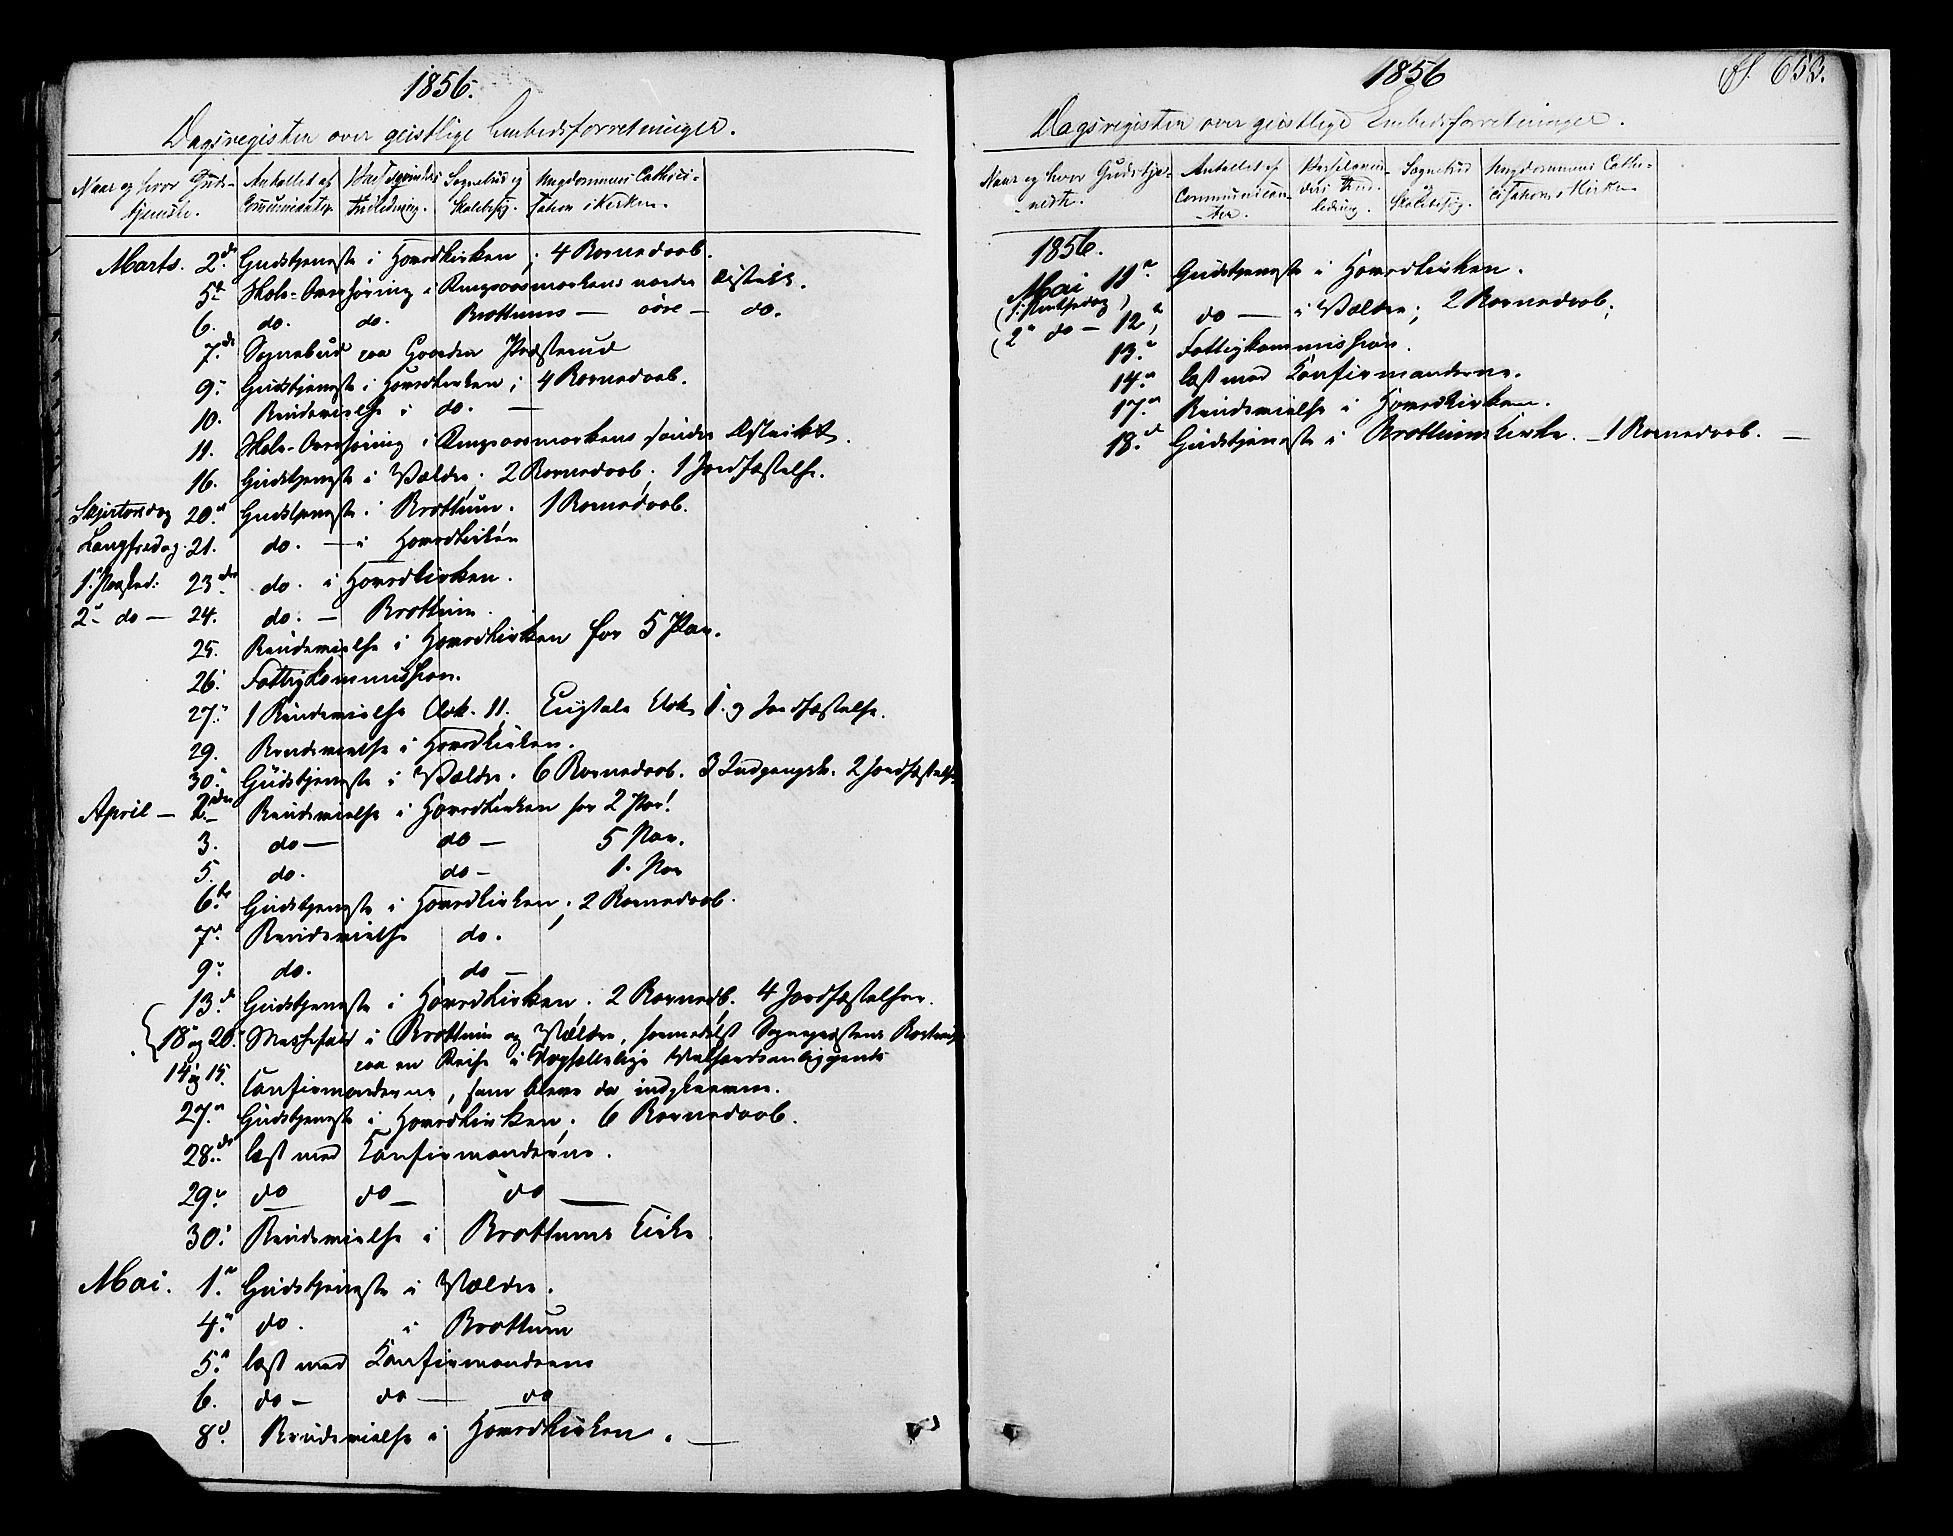 1856.
Dagsregister over geistlige Embedsforretninger.
Naar og hvor Guds-
tjeneste.
Antallet af
Communicanter
Barselqvinders
Indledning.
Sognebud og
Skolebesøg.
Ungdommens Catheci-
sation i Kirken.
Marts. 2de Gudstjeneste i Hovedkirken; 4 Barnedaab.
5te Skole-Overhøring i Ringsagermarkens nordre Distrikt.
6. do. do. Brøttums — øvre — do.
7de Sognebud paa Gaarden
9. Gudstjeneste i Hovedkirken; 4 Barnedaab.
10. Brudevielse i do. —
11. Skole-Overhøring i Ringsagermarkens søndre Distrikt.
16. Gudstjeneste i Vældre; 2 Barnedaab; 1 Jordfæstelse.
Skjærtorsdag 20. Gudstjeneste i Brøttum. 1 Barnedaab.
Langfredag. 21. do. — i Hovedkirken
1. Paasked: 23de do. i Hovedkirken.
2. do — 24. do. — Brøttum.
25. Brudevielse i Hovedkirken for 5 Par.
26. Fattigkommission.
27. 1 Brudevielse Klok. 11. Liigtale Klok 1. og Jordfæstelse.
29. Brudevielse i Hovedkirken.
30. Gudstjeneste i Vældre. 6 Barnedaab. 3 Indgangsk. 2 Jordfæstelse
April — 2den Brudevielse i Hovedkirken for 2 Par!
3. do — do — 5 Par.
5. do. do — 1. Par
6te Gudstjeneste i Hovedkirken; 2 Barnedaab.
7. Brudevielse do.
9. do. do —
13de Gudstjeneste i Hovedkirken. 2 Barnedb. 4 Jordfæstelser.
18 og 20. Messefald i Brøttum og Vældre, formedelst Sognepræstens
paa en Reise i Velfærdsanliggende
14 og 15. Confirmanderne, som bleve da indskrevne.
27. Gudstjeneste i Hovedkirken. 6 Barnedaab.
28de læst med Konfirmanderne.
29. do do — do —
30. Brudevielse i Brøttums Kirke.
Mai. 1. Gudstjeneste i Vældre.
4. do. i Brøttum
5. læst med Konfirmanderne
6. do — do — do
8. Brudevielse i Hovedkirken. —
1856
Dagsregister over geistlige Embedsforretninger.
Naar og hvor Gudstje-
neste.
Antallet af
Communican-
ter.
Barselqvin-
ders Ind-
ledning.
Sognebud
og
Skolebesøg.
Ungdommens Cathe-
cisation i Kirken
1856.
Mai 11. Gudstjeneste i Hovedkirken.
(1. Pintsedag)
(2. do — 12. do — i Vældre; 2 Barnedaab;
13. Fattigkommission.
14. læst med Konfirmanderne.
17. Brudevielse i Hovedkirken.
18. Gudstjeneste i Brøttums Kirke. — 1 Barnedaab. —